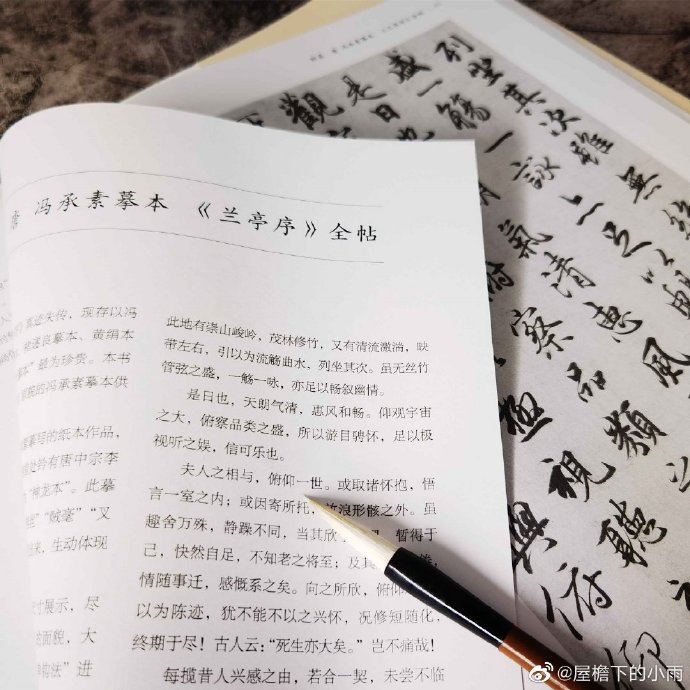 冯承素摹本 《兰亭序》全帖
真迹失传，现存以冯
遂良摹本、黄绢本
本”最为珍贵。本书
院的冯承素摹本供
摹写的纸本作品，
处钤有唐中宗李
“神龙本”。此摹
”“贼毫”“叉
来，生动体现
寸展示，尽
的面貌，大
构法”进
此地有崇山峻岭，茂林修竹，又有清流激湍，映
带左右，引以为流觞曲水，列坐其次。虽无丝竹
管弦之盛，一觞一咏，亦足以畅叙幽情。
是日也，天朗气清，惠风和畅。仰观宇宙
之大，俯察品类之盛，所以游目骋怀，足以极
视听之娱，信可乐也。
夫人之相与，俯仰一世。或取诸怀抱，悟
言一室之内；或因寄所托，放浪形骸之外。虽
趣舍万殊，静躁不同，当其欣 暂得于
己，快然自足，不知老之将至；及其 倦，
情随事迁，感慨系之矣。向之所欣，俯仰
以为陈迹，犹不能不以之兴怀，况修短随化，
终期于尽！古人云：“死生亦大矣。”岂不痛哉！
每揽昔人兴感之由，若合一契，未尝不临
列坐其次雖無絲
盛一觴一詠
是日也 氣清惠風
觀 察品類
視聽
俯仰
@屋檐下的小雨